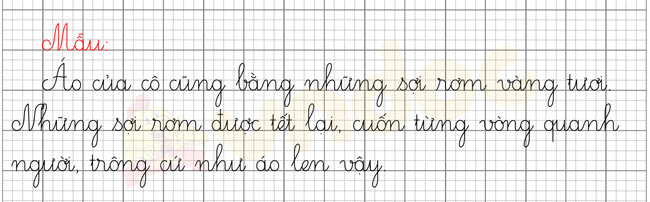 Mẫu:
Áo của cô cũng bằng những sợi rơm vàng tươi.
Những sợi rơm được tết lại, cuốn từng vòng quanh
người, trông cứ như áo len vậy.